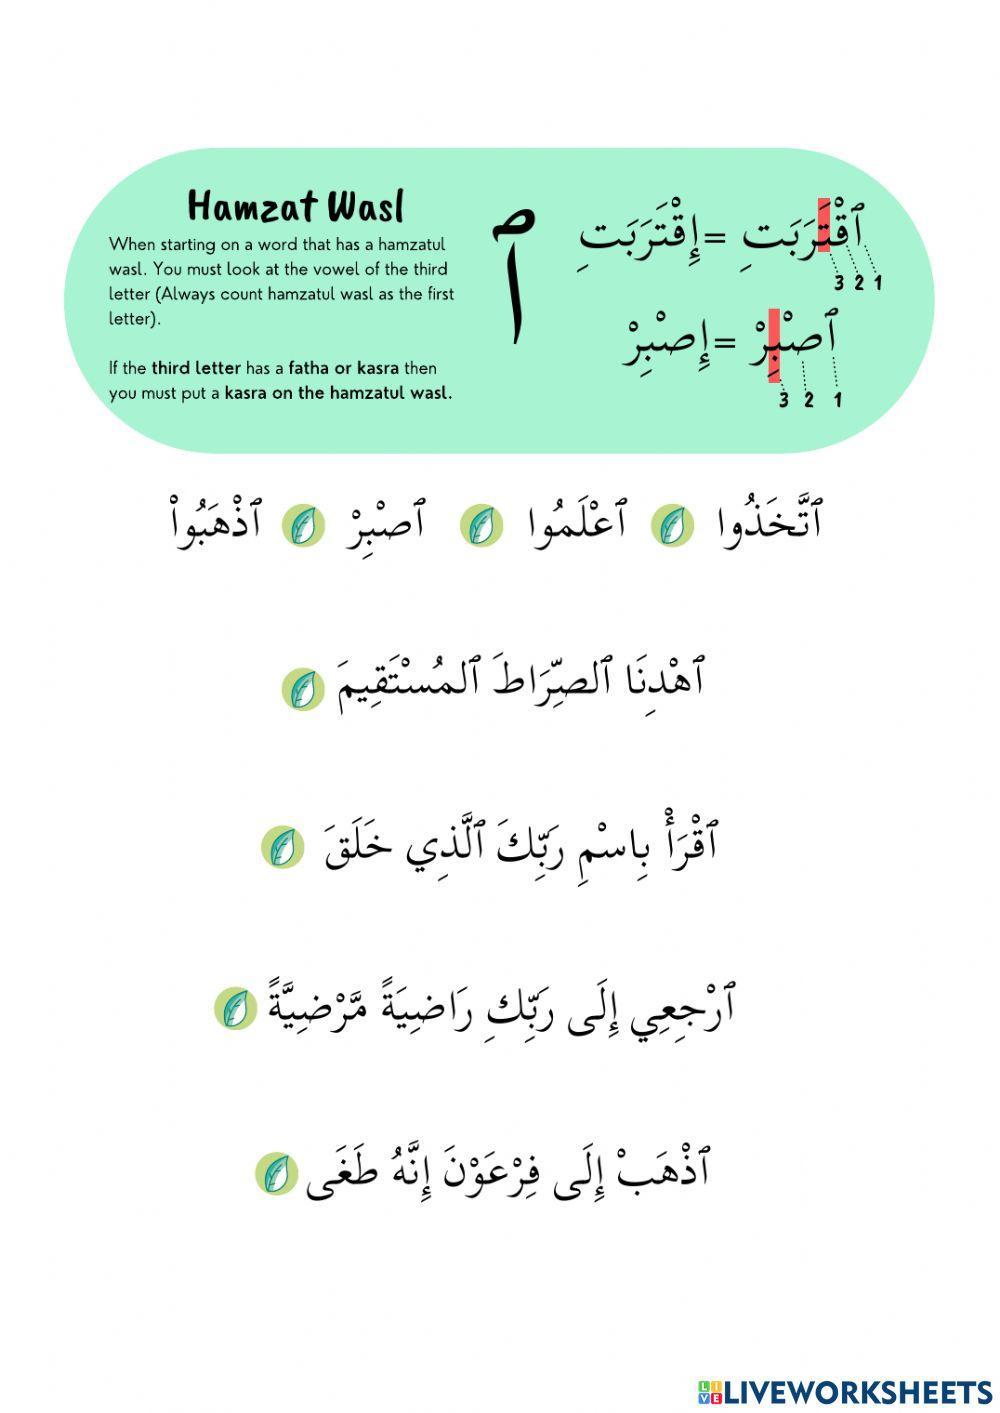 Hamzat Wasl
When starting on a word that has a hamzatul
wasl. You must look at the vowel of the third
letter (Always count hamzatul wasl as the first
letter).
If the third letter has a fatha or kasra then
you must put a kasra on the hamzatul wasl.
ٱ
ٱقْتَرَبَتِ = إِقْتَرَبَتِ
3 2 1
ٱصْبِرْ = إِصْبِرْ
3 2 1
ٱتَّخَذُوا ٱعْلَمُوا ٱصْبِرْ ٱذْهَبُواْ
ٱهْدِنَا ٱلصِّرَاطَ ٱلمُسْتَقِيمَ
ٱقْرَأْ بِاسْمِ رَبِّكَ ٱلَّذِي خَلَقَ
ٱرْجِعِي إِلَى رَبِّكِ رَاضِيَةً مَّرْضِيَّةً
ٱذْهَبْ إِلَى فِرْعَوْنَ إِنَّهُ طَغَى
LIVE LIVEWORKSHEETS